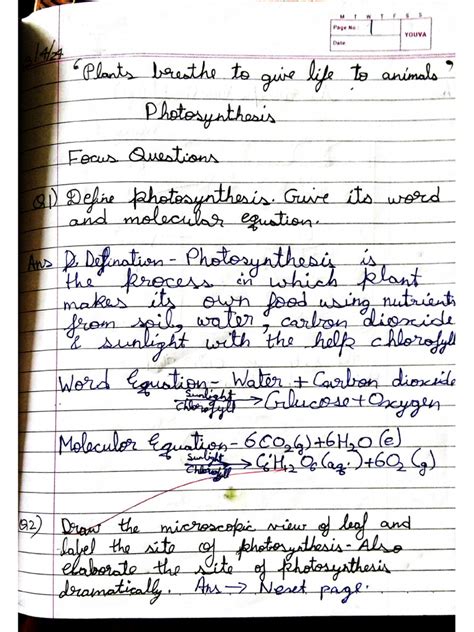 M T W T F S S
Page No.:
Date:
YOUVA
/4/24
"Plants breathe to give life to animals"
Photosynthesis
Focus Questions
Q1) Define photosynthesis. Give its word
and molecular equation.
Ans D. Defination - Photosynthesis is
the process in which plant
makes its own food using nutrients
from soil, water, carbon dioxide
& sunlight with the help chlorofyll
Word Equation - Water + Carbon dioxide
Sunlight
Chlorofyll → Glucose + Oxygen
Molecular Equation - 6CO2(g) + 6H2O (l)
Sunlight
Chlorofyll → C6H12O6(aq.) + 6O2 (g)
Q2) Draw the microscopic view of leaf and
label the site of photosynthesis - Also
elaborate the site of photosynthesis
dramatically. Ans → Next page.